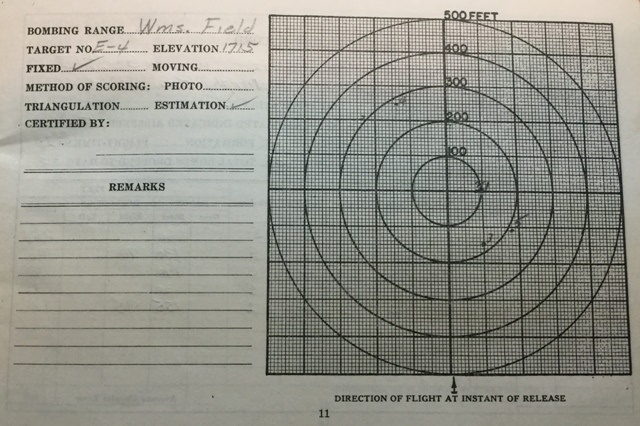 BOMBING RANGE Wms. Field
TARGET NO. E-4 ELEVATION 1715
FIXED ✓ MOVING
METHOD OF SCORING: PHOTO
TRIANGULATION ESTIMATION ✓
CERTIFIED BY:
REMARKS
500 FEET
400
300
200
100
DIRECTION OF FLIGHT AT INSTANT OF RELEASE
11